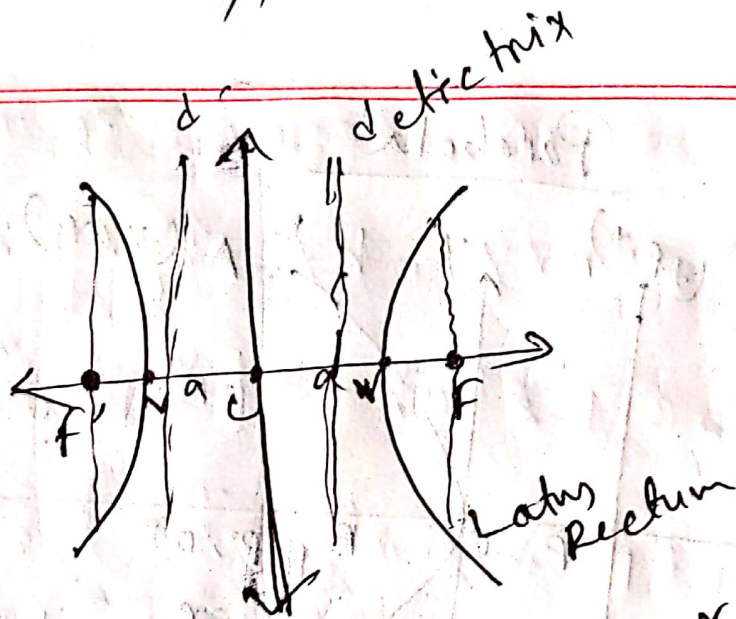 d' detictrix
F' V a C a V F
Latus
Rectum